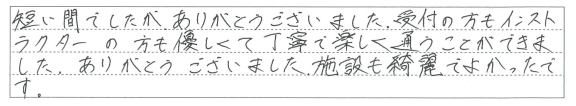 短い間でしたが、ありがとうございました。受付の方もインスト
ラクターの方も優しくて丁寧で楽しく通うことができま
した。ありがとうございました。施設も綺麗でよかったで
す。